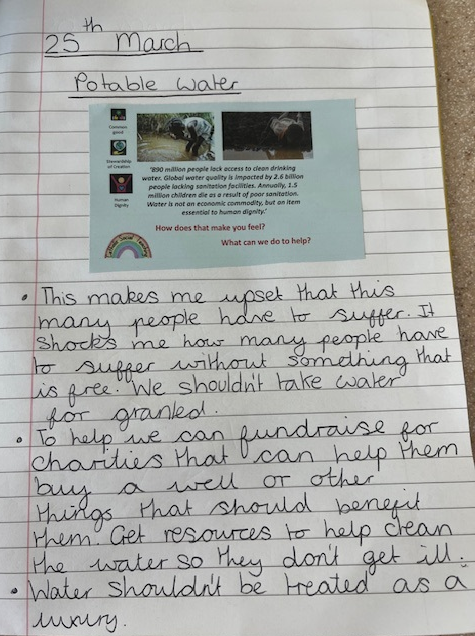 25th March
Potable Water
Common
good
Stewardship
of Creation
Human
Dignity
'890 million people lack access to clean drinking
water. Global water quality is impacted by 2.6 billion
people lacking sanitation facilities. Annually, 1.5
million children die as a result of poor sanitation.
Water is not an economic commodity, but an item
essential to human dignity.'
How does that make you feel?
What can we do to help?
Catholic Social Teaching
• This makes me upset that this
many people have to suffer. It
shocks me how many people have
to suffer without something that
is free. We shouldn't take water
for granted.
• To help we can fundraise for
charities that can help them
buy a well or other
things that should benefit
them. Get resources to help clean
the water so they don't get ill.
• Water shouldn't be treated as a
luxury.